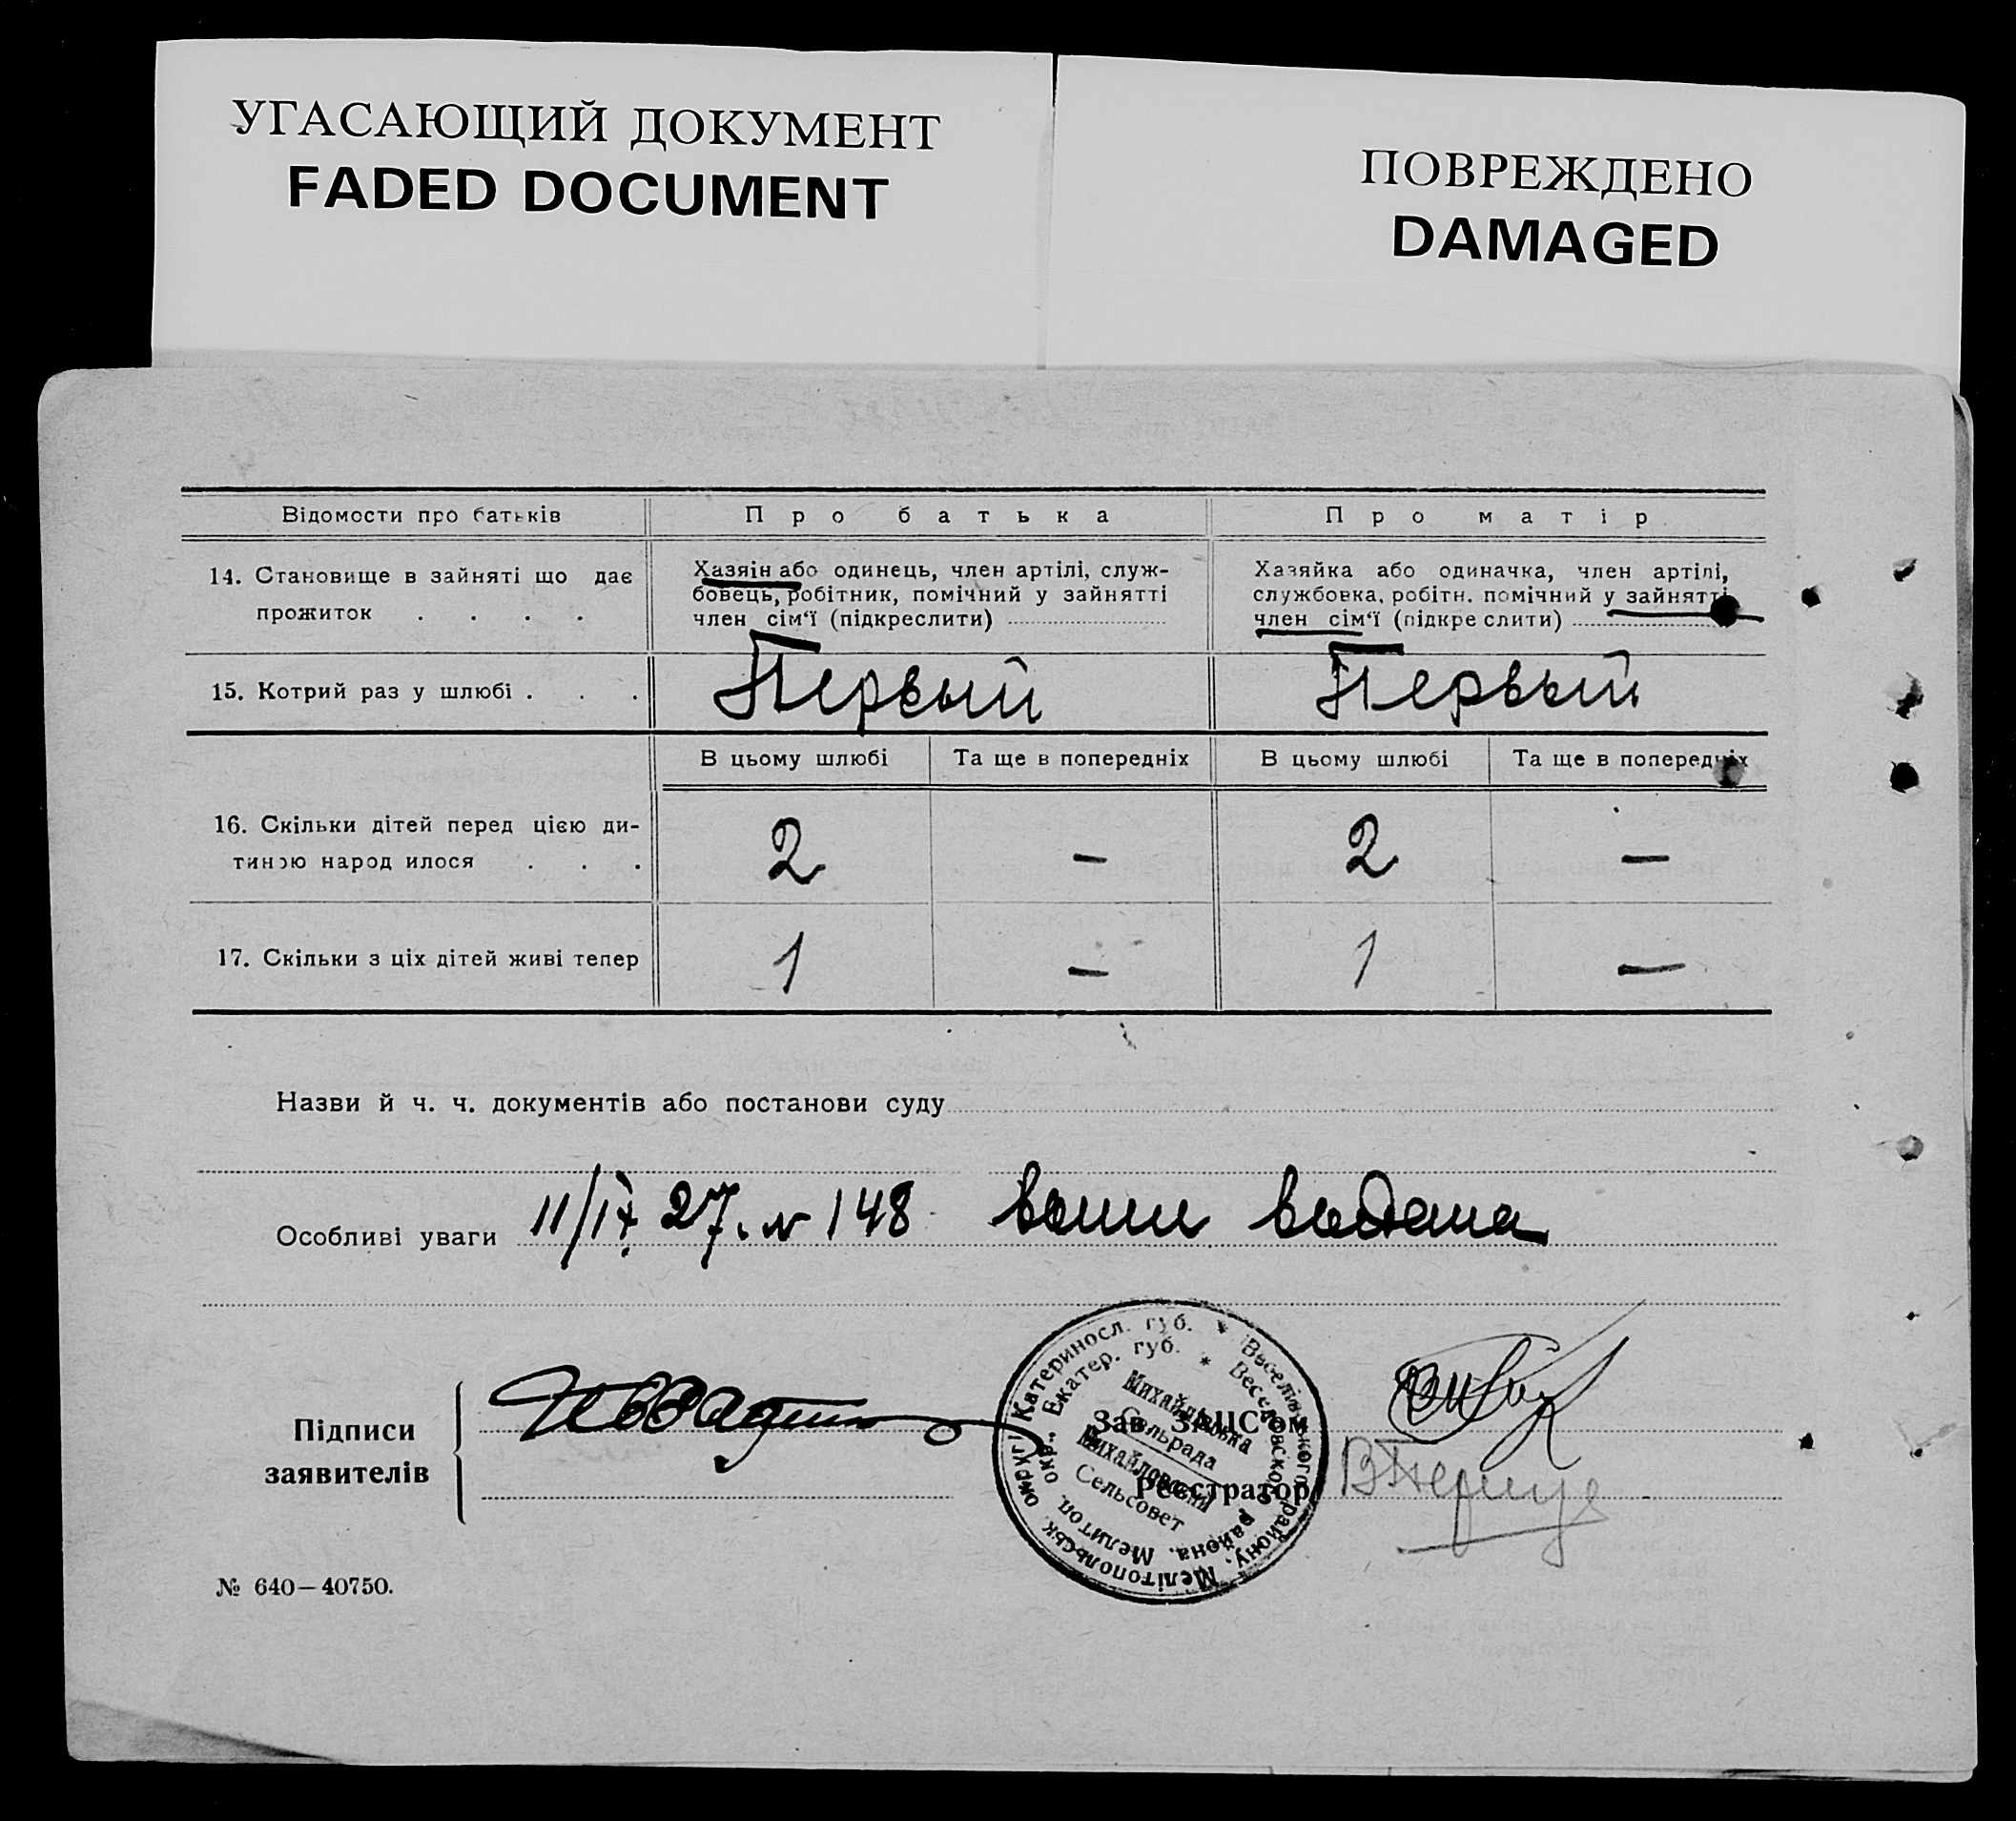 УГАСАЮЩИЙ ДОКУМЕНТ
FADED DOCUMENT
ПОВРЕЖДЕНО
DAMAGED
Відомости про батьків
Про батька
Про матір
14. Становище в зайняті що дає
прожиток . . . .
Хазяїн або одинець, член артілі, служ-
бовець, робітник, помічний у зайнятті
член сім'ї (підкреслити)
Хазяйка або одиначка, член артілі,
службовка, робітн. помічний у зайнятті
член сім'ї (підкреслити)
15. Котрий раз у шлюбі . . .
Первый
Первый
В цьому шлюбі
Та ще в попередніх
В цьому шлюбі
Та ще в попередніх
16. Скільки дітей перед цією ди-
тиною народилося . . .
2
—
2
—
17. Скільки з ціх дітей живі тепер
1
—
1
—
Назви й ч. ч. документів або постанови суду
Особливі уваги 27. № 148 выпи выдана
Підписи
заявителів
Катериносл. губ. * Веселівського району, Мелітопольськ. округ
Екатер. губ. * Веселовского района, Мелитоп. окр.
Михайловська
Сельрада
Михайловский
Сельсовет
Зав. ЗАПСом
Реєстратор
№ 640—40750.